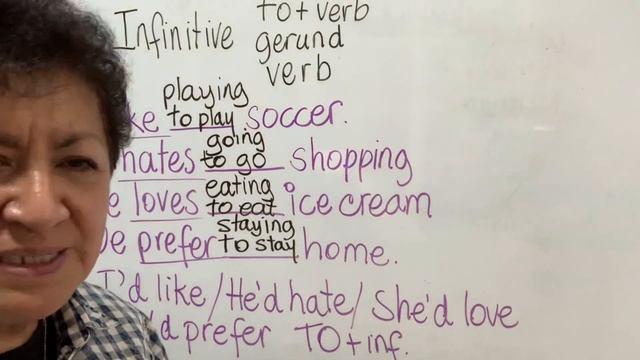 Infinitive to + verb
gerund
verb
playing
to play soccer.
going
hates to go shopping
eating
loves to eat ice cream
staying
prefer to stay home.
I'd like / He'd hate / She'd love
'd prefer TO + inf.